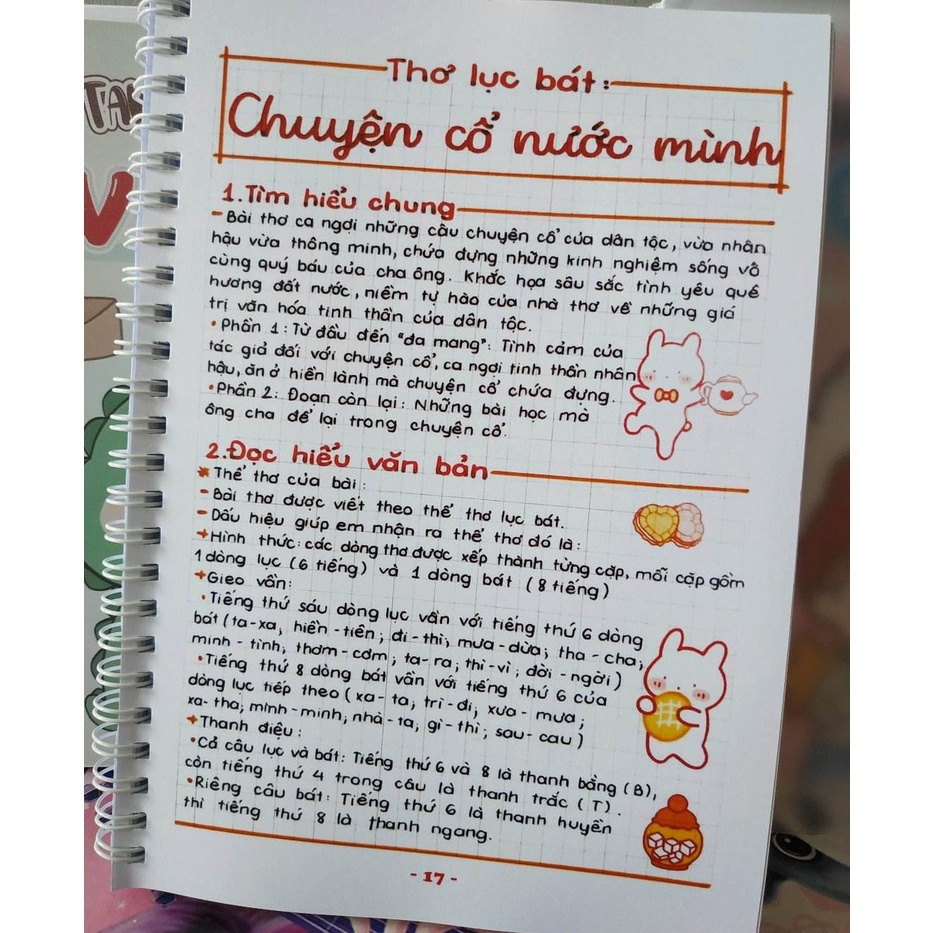 Thơ lục bát:
Chuyện cổ nước mình
1.Tìm hiểu chung
- Bài thơ ca ngợi những câu chuyện cổ của dân tộc, vừa nhân
hậu vừa thông minh, chứa đựng những kinh nghiệm sống vô
cùng quý báu của cha ông. Khắc họa sâu sắc tình yêu quê
hương đất nước, niềm tự hào của nhà thơ về những giá
trị văn hóa tinh thần của dân tộc.
• Phần 1: Từ đầu đến "đa mang": Tình cảm của
tác giả đối với chuyện cổ, ca ngợi tinh thần nhân
hậu, ăn ở hiền lành mà chuyện cổ chứa đựng.
• Phần 2: Đoạn còn lại: Những bài học mà
ông cha để lại trong chuyện cổ.
2.Đọc hiểu văn bản
* Thể thơ của bài:
- Bài thơ được viết theo thể thơ lục bát.
- Dấu hiệu giúp em nhận ra thể thơ đó là:
+ Hình thức: các dòng thơ được xếp thành từng cặp, mỗi cặp gồm
1 dòng lục (6 tiếng) và 1 dòng bát (8 tiếng)
+ Gieo vần:
• Tiếng thứ sáu dòng lục vần với tiếng thứ 6 dòng
bát (ta-xa, hiền-tiên; đi-thì; mưa-dừa; tha-cha;
minh-tình; thơm-cơm; ta-ra; thì-vì; đời-ngời)
• Tiếng thứ 8 dòng bát vần với tiếng thứ 6 của
dòng lục tiếp theo (xa-ta; trì-đi; xưa-mưa;
xa-tha; mình-minh; nhà-ta; gì-thì; sau-cau)
+ Thanh điệu:
• Cả câu lục và bát: Tiếng thứ 6 và 8 là thanh bằng (B),
còn tiếng thứ 4 trong câu là thanh trắc (T).
• Riêng câu bát: Tiếng thứ 6 là thanh huyền
thì tiếng thứ 8 là thanh ngang.
- 17 -